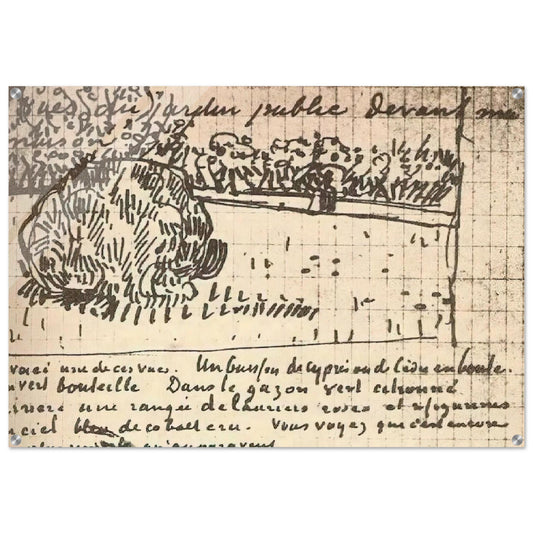 Vues du jardin public devant ma
maison
voici une de ces vues. Un buisson de cyprès ou de cèdre en boule.
vert bouteille Dans le gazon vert citronné
arrière une rangée de lauriers roses et
ciel bleu de cobalt cru. Vous voyez que c'est encore